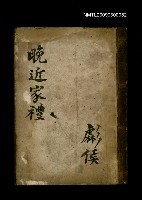 NMTL20090600052
晚近家禮
彪侯